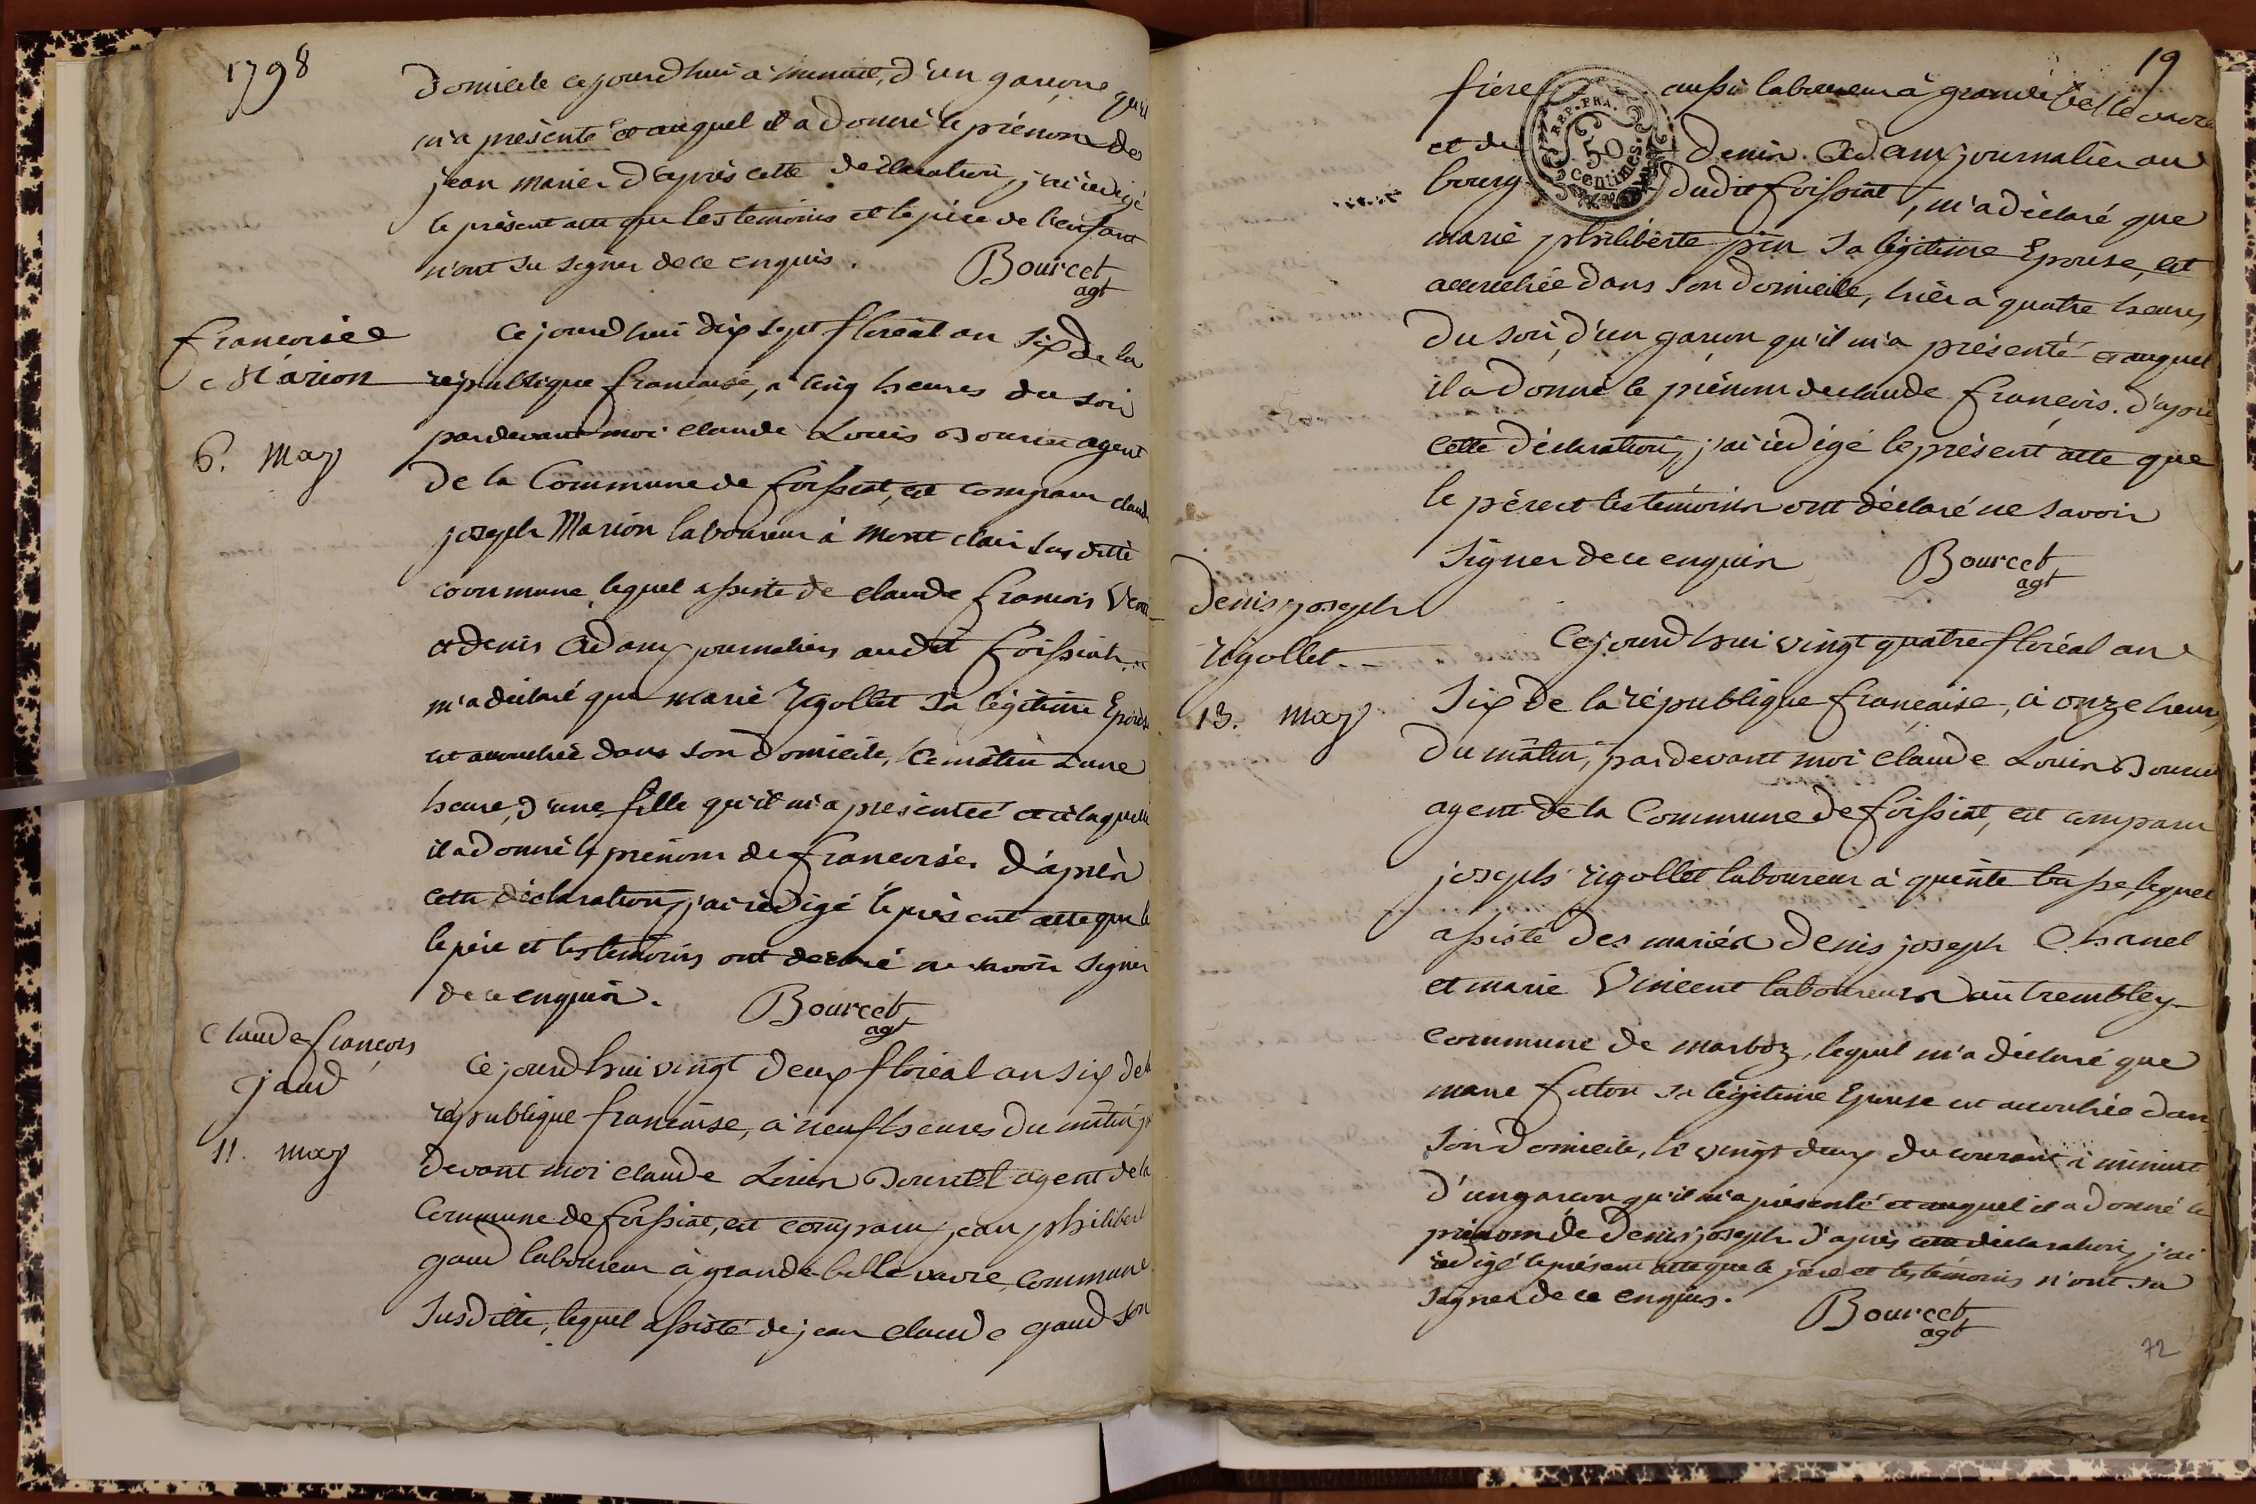 1798
domicile cejourdhui à minuit, d'un garçon qu'il
m'a présenté et auquel il a donné le prénom de
jean marie. d'après cette déclaration j'ai rédigé
le présent acte que les temoins et le père de l'enfant
n'ont su signer de ce enquis.
Bourcet
agt
françoise
Marion
6. may
Cejourdhui dix sept floréal an six de la
république française, à cinq heures du soir
pardevant moi claude Louis Bourcet agent
de la Commune de foissiat, est comparu claude
joseph Marion laboureur à mont clair susditte
commune, lequel assisté de claude françois
et denis adam journaliers audit foissiat
m'a déclaré que marie rigollet sa légitime Epouse
est accouchée dans son domicile, ce matin à une
heure, d'une fille qu'il m'a présentée et à laquelle
il a donné le prénom de françoise. d'après
cette déclaration j'ai rédigé le présent acte que le
le père et les temoins ont declaré ne savoir signer
de ce enquis.
Bourcet
agt
Claude françois
jaud
11. may
Cejourdhui vingt deux floréal an six de la
république française, à neuf heures du matin par
devant moi claude Louis Bourcet agent de la
Commune de foissiat, est comparu jean philibert
gaud laboureur à grande belle vavre, commune
susditte, lequel assisté de jean claude gaud son
19
frère aussi laboureur à grande belle vavre
REP. FRA.
50
centimes.
et de denis adam journalier au
bourg dudit foissiat, m'a déclaré que
marie philiberte pin sa légitime Epouse, est
accouchée dans son domicile, hier à quatre heures
du soir, d'un garçon qu'il m'a présenté et auquel
il a donné le prénom de claude françois. d'après
cette déclaration, j'ai rédigé le présent acte que
le père et les témoins ont déclaré ne savoir
signer de ce enquis
Bourcet
agt
Denis joseph
rigollet.
13. may
Cejourdhui vingt quatre floréal an
six de la république française, à onze heures
du matin, pardevant moi claude Louis Bourcet
agent de la Commune de foissiat, est comparu
joseph rigollet laboureur à quinte basse, lequel
assisté des mariés denis joseph Chanel
et marie Vincent laboureurs au trembley
commune de marboz, lequel m'a déclaré que
marie futon sa légitime Epouse est accouchée dans
son domicile, le vingt deux du courant à minuit
d'un garçon qu'il m'a présenté et auquel il a donné le
prénom de Denis joseph. d'après cette déclaration j'ai
rédigé le présent acte que le père et les temoins n'ont su
signer de ce enquis.
Bourcet
agt
72